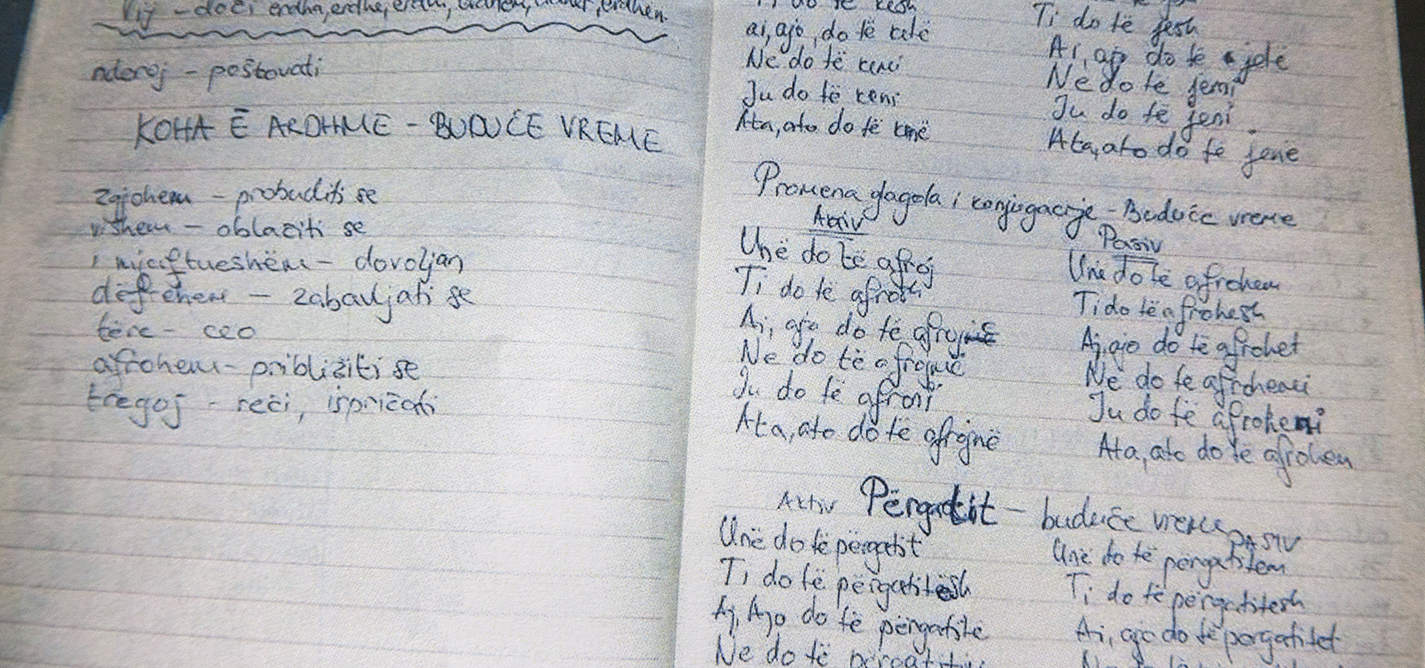 Vij - doći erdha, erdhe, erdhi, erdhën.
nderoj - poštovati
KOHA E ARDHME - BUDUĆE VREME
zgjohem - probuditi se
vishem - oblačiti se
i mjaftueshëm - dovoljan
dëfrehem - zabavljati se
tërë - ceo
afrohem - približiti se
tregoj - reći, ispričati
Ti do të kesh
ai, ajo, do të ketë
Ne do të kemi
Ju do të keni
Ata, ato do të kenë
Ti do të jesh
Ai, ajo do të jetë
Ne do të jemi
Ju do të jeni
Ata, ato do të jenë
Promena glagola i konjugacije - Buduće vreme
Aktiv
Unë do të afroj
Ti do të afrosh
Aj, ajo do të afrojë
Ne do të afrojmë
Ju do të afroni
Ata, ato do të afrojnë
Pasiv
Unë do të afrohem
Ti do të afrohesh
Aj, ajo do të afrohet
Ne do të afrohemi
Ju do të afroheni
Ata, ato do të afrohen
Aktiv Përgatit - buduće vreme PASIV
Unë do të përgatit
Ti do të përgatitësh
Aj, Ajo do të përgatitë
Ne do të
Unë do të përgatitem
Ti do të përgatitesh
Ai, ajo do të përgatitet